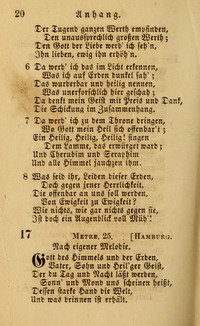 20 Anhang.
Der Tugend ganzen Werth empfinden,
Den unaussprechlich großen Werth;
Den Gott der Liebe werd' ich seh'n,
Ihn lieben, ewig ihn erhöh'n.
6 Da werd' ich das im Licht erkennen,
Was ich auf Erden dunkel sah';
Das wunderbar und heilig nennen,
Was unerforschlich hier geschah;
Da denkt mein Geist mit Preis und Dank,
Die Schickung im Zusammenhang.
7 Da werd' ich zu dem Throne dringen,
Wo Gott mein Heil sich offenbar't;
Ein Heilig, Heilig, Heilig! singen
Dem Lamme, das erwürget ward;
Und Cherubim und Seraphim
Und alle Himmel jauchzen ihm.
8 Was seid ihr, Leiden dieser Erden,
Doch gegen jener Herrlichkeit,
Die offenbar an uns soll werden,
Von Ewigkeit zu Ewigkeit?
Wie nichts, wie gar nichts gegen sie,
Ist doch ein Augenblick voll Müh'!
17 METRE, 25. [HAMBURG.
Nach eigener Melodie.
Gott des Himmels und der Erden,
Vater, Sohn und Heil'ger Geist,
Der du Tag und Nacht läßt werden,
Sonn' und Mond uns scheinen heißt,
Dessen starke Hand die Welt,
Und was drinnen ist erhält.